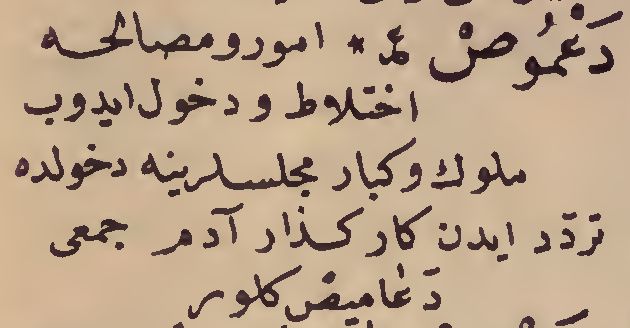 دَعْمُوصْ * امور و مصالحه
اختلاط و دخول ايدوب
ملوك و كبار مجلسلرينه دخولده
تردّد ايدن كار كذار آدم جمعى
دَعاميص كلور